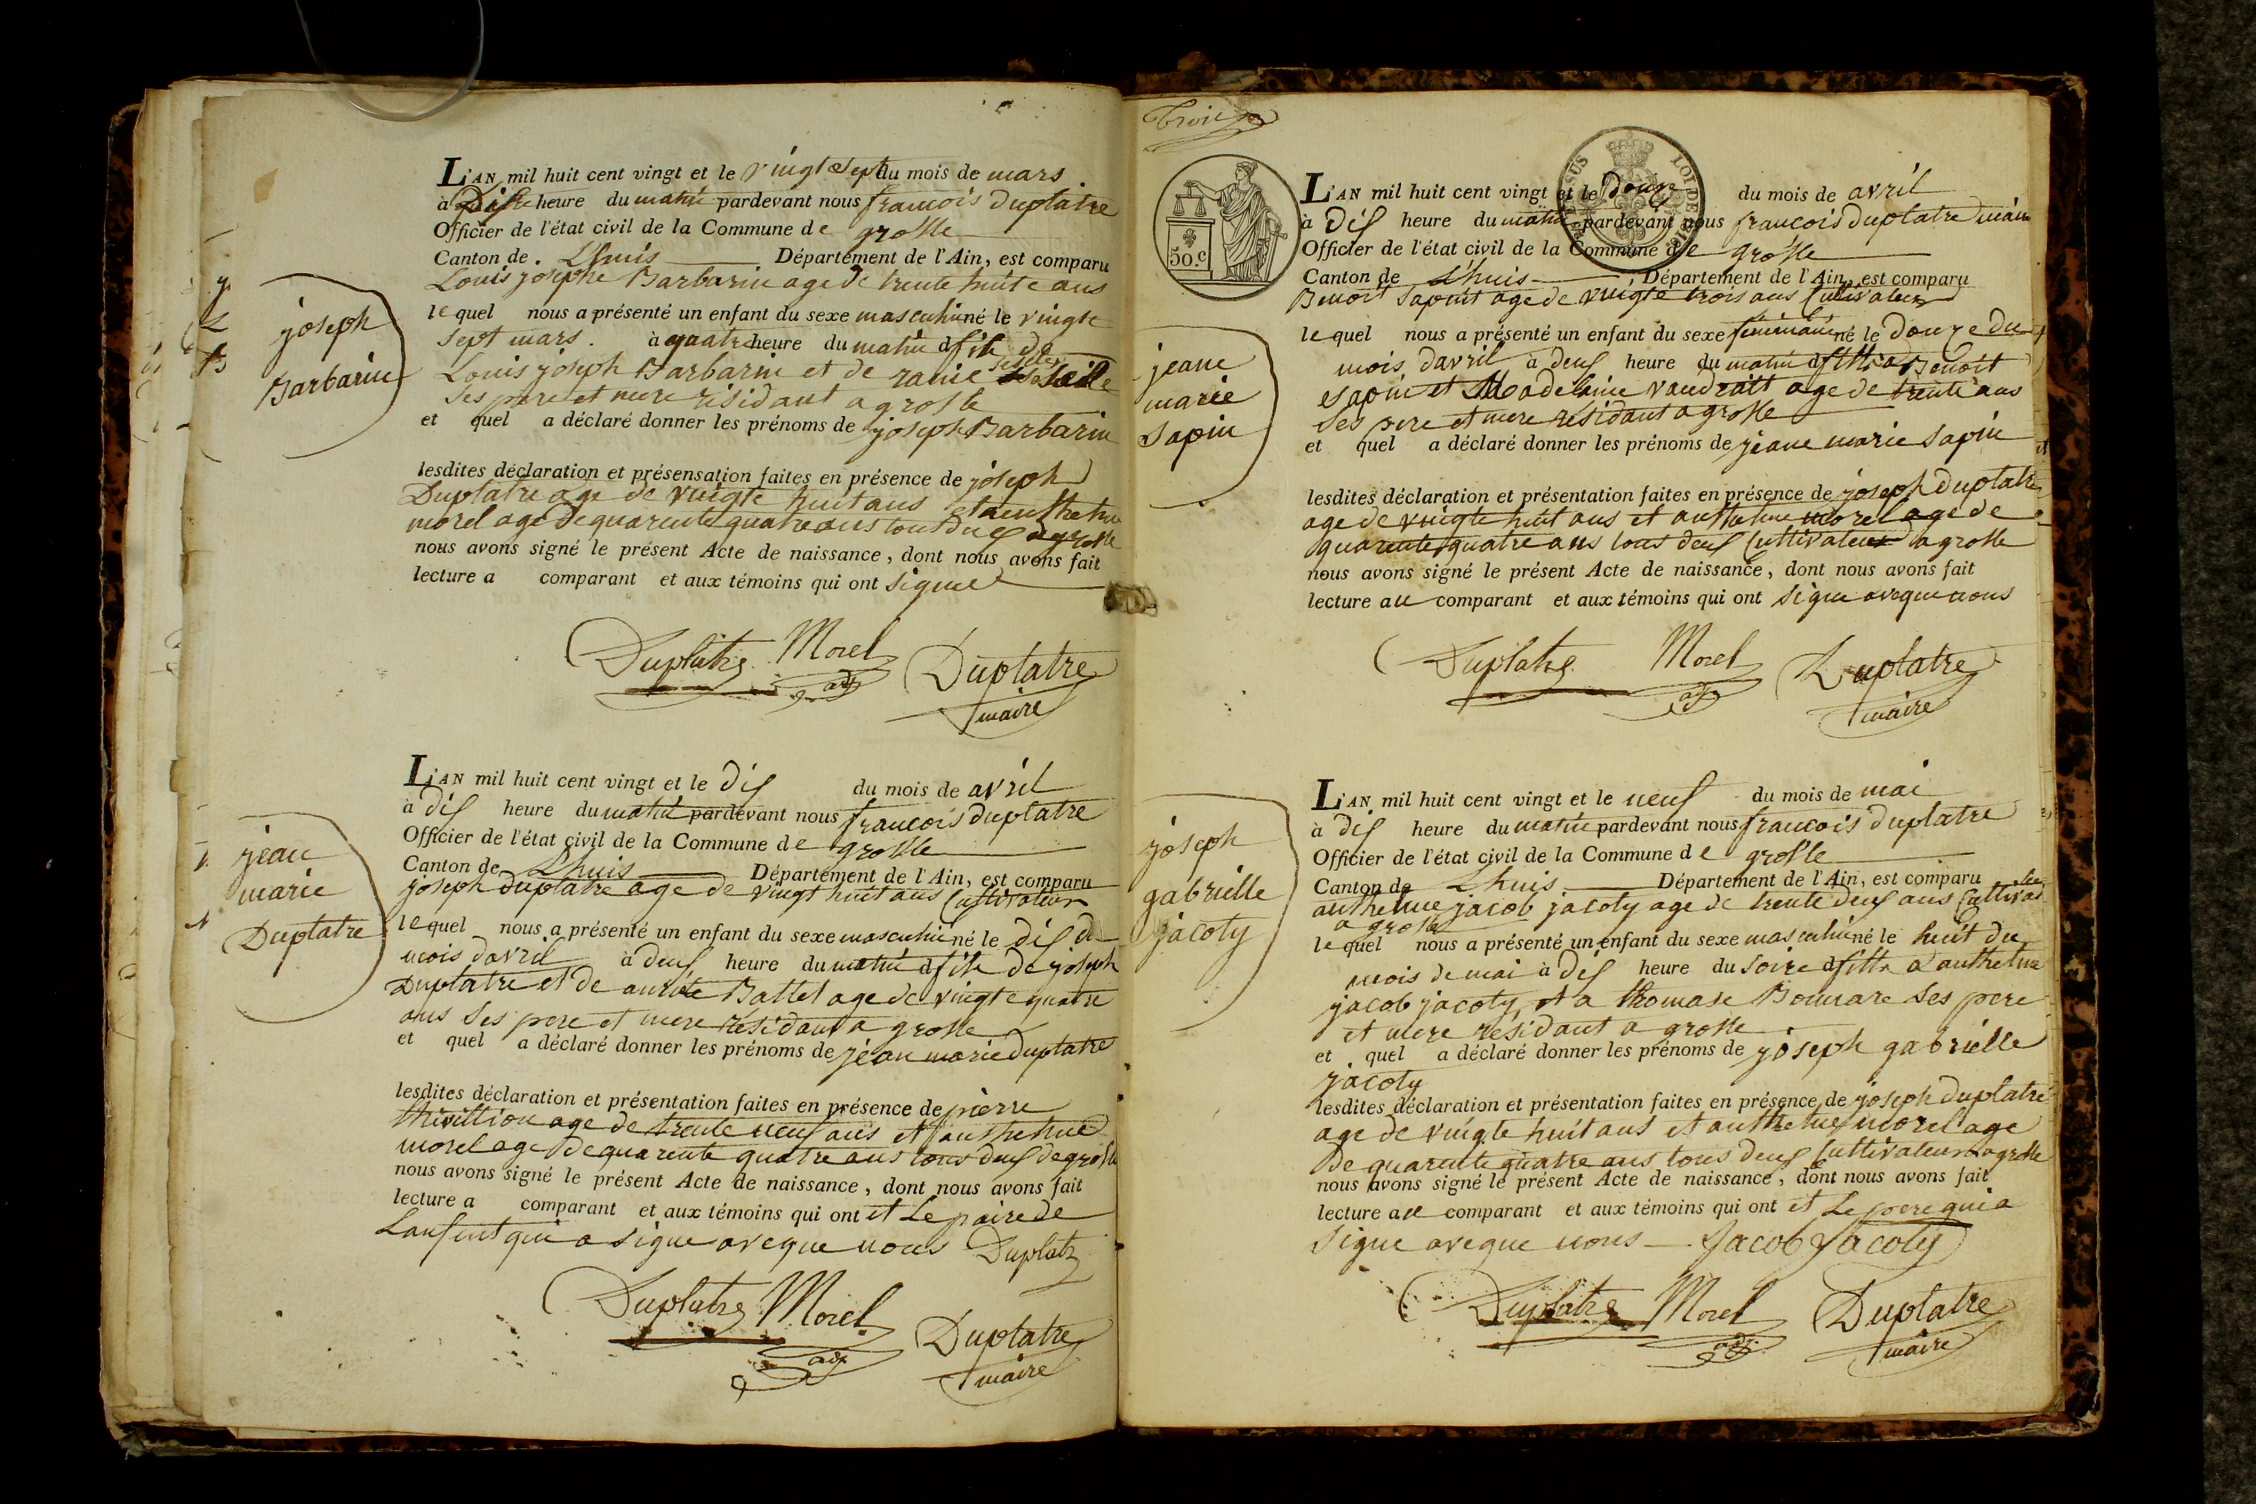 joseph
Barbarin
L'AN mil huit cent vingt et le vingt sept du mois de mars
à Dis heure du matin pardevant nous francois duplatre
Officier de l'état civil de la Commune de groslle
Canton de Lhuis Département de l'Ain, est comparu
Louis josephe Barbarin age de trente huit e ans
lequel nous a présenté un enfant du sexe masculin né le vingte
sept mars. à quatre heure du matin d fils de
Louis joseph Barbarin et de
ses pere et mere résidant a groslle
et quel a déclaré donner les prénoms de joseph Barbarin
lesdites déclaration et présensation faites en présence de joseph
Duplatre age de vuigte huit ans et anthelme
morel age de quarente quatre ans tout deus a groslle
nous avons signé le présent Acte de naissance, dont nous avons fait
lecture a comparant et aux témoins qui ont signue
Duplatre Morel Duplatre
adj maire
jean
marie
Duplatre
L'AN mil huit cent vingt et le dis du mois de avril
à dis heure du matin pardevant nous francois duplatre
Officier de l'état civil de la Commune de groslle
Canton de Lhuis Département de l'Ain, est comparu
joseph duplatre age de vingt huit ans Cultivateur
lequel nous a présenté un enfant du sexe masculin né le dis du
mois davril à deus heure du matin d fils de joseph
Duplatre et de Battet age de vingte quatre
ans ses pere et mere résidant a groslle
et quel a déclaré donner les prénoms de jean marie duplatre
lesdites déclaration et présentation faites en présence de pierre
thivillion age de trente neuf ans et anthelme
morel age de quarente quatre ans tous deus de groslle
nous avons signé le présent Acte de naissance, dont nous avons fait
lecture a comparant et aux témoins qui ont et Le paire de
Lanfent qui a signe aveque nous Duplatre
Duplatre Morel Duplatre
adj maire
Trois
50.c
jeane
marie
Sapin
L'AN mil huit cent vingt et le douze du mois de avril
à dis heure du matin pardevant nous francois duplatre maire
Officier de l'état civil de la Commune de groslle
Canton de Lhuis Département de l'Ain, est comparu
Benoit Sapint age de vuigte trois ans Cultivateur
lequel nous a présenté un enfant du sexe feminin né le douze du
mois davril à deus heure du matin d fille a Benoit
sapin et Madelaine vaudrait age de trente ans
ses pere et mere residant a groslle
et quel a déclaré donner les prénoms de jeane marie Sapin
lesdites déclaration et présentation faites en présence de joseph duplatre
age de vuigte huit ans et anthelme morel age de
quarente quatre ans tous deus Cultivateur a groslle
nous avons signé le présent Acte de naissance, dont nous avons fait
lecture au comparant et aux témoins qui ont signe aveque nous
Duplatre Morel Duplatre
adj maire
joseph
gabrielle
jacoty
L'AN mil huit cent vingt et le neuf du mois de mai
à dis heure du matin pardevant nous francois duplatre
Officier de l'état civil de la Commune de groslle
Canton de Lhuis Département de l'Ain, est comparu
anthelme jacob jacoty age de trente deus ans Cultivateur
a groslle
lequel nous a présenté un enfant du sexe masculin né le huit du
mois de mai à dis heure du soire d fille a anthelme
jacob jacoty et a thomase Bonnare ses pere
et mere residant a groslle
et quel a déclaré donner les prénoms de joseph gabrielle
jacoty
lesdites déclaration et présentation faites en présence de joseph duplatre
age de vuigte huit ans et anthelme morel age
de quarente quatre ans tous deus Cultivateur a groslle
nous avons signé le présent Acte de naissance, dont nous avons fait
lecture au comparant et aux témoins qui ont et Le pere qui a
signe aveque nous Jacob Jacoty
Duplatre Morel Duplatre
adj maire